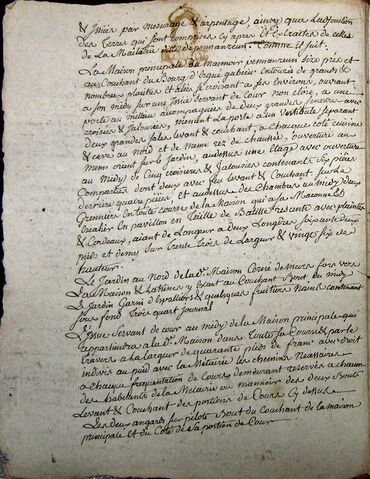 & Issües par mesurage & arpentage, ainsy que la
des terres qui sont comprises cy après Et Extraites de celes
de La Maitairie ditte de penmanreux. Comme il suit.
La Maison principale du manoir penmanreux size pres et
au Couchant du Bourg d'Ergué gabéric Entourée de grands &
nombreux et à ses Environs, ouvrant
a son midy sur une Issüe Servant de Cour non Close, a une
porte au milieu accompagnée de deux grandes fenestre avec
croisées & Jalousies, menant La porte a un Vestibule Separant
deux grandes Sales levant & couchant, a chaque coté cuisine
& cave au Nord et de meme rez de chaussée, ouverture au
meme orient sur le Jardin, audessus une étage avec ouverture
au midy de Cinq croisières & Jalousies contenant Six pièces
Comparties dont deux avec feu levant & Couchant, sur le
derrière quatre pièces, et audessus des Chambres au midy deux
Grenniers En toute course de la Maison qui a sa Maconnerie
En pavillon en Taille de Batisse recente avec plaintes
& Cordeaux, aiant de Longeur a deux Longères soixante deux
pied et demy sur trente trois de Largeur & vingt six de
hauteur.
Le Jardin au Nord de lad. Maison Cerné de murs fors vers
La Maison & Latrines y étant au Couchant Bout du midy
Le Jardin Garni d'Espalliers & quelques fruitiers Nains contenant
sous fond Trois quart Journal
L'Issue Servant de cour au midy de la Maison principale qui
appartiendra a lad. Maison dans toute sa Course & par le
travers a la largeur de quarante pieds de franc avec droit
indivis au puid avec la Métairie les cheminéss Nessaire
a chaque fraquantation de Cours demeurant reservés a chacun
des habitants de la Métairie au mannoir des deux Bouts
Levant & Couchant des portions de Cours Cy dessus
Les deux angards sur pilots Bout du Couchant de la maison
principale et du Coté de la portion de Cour